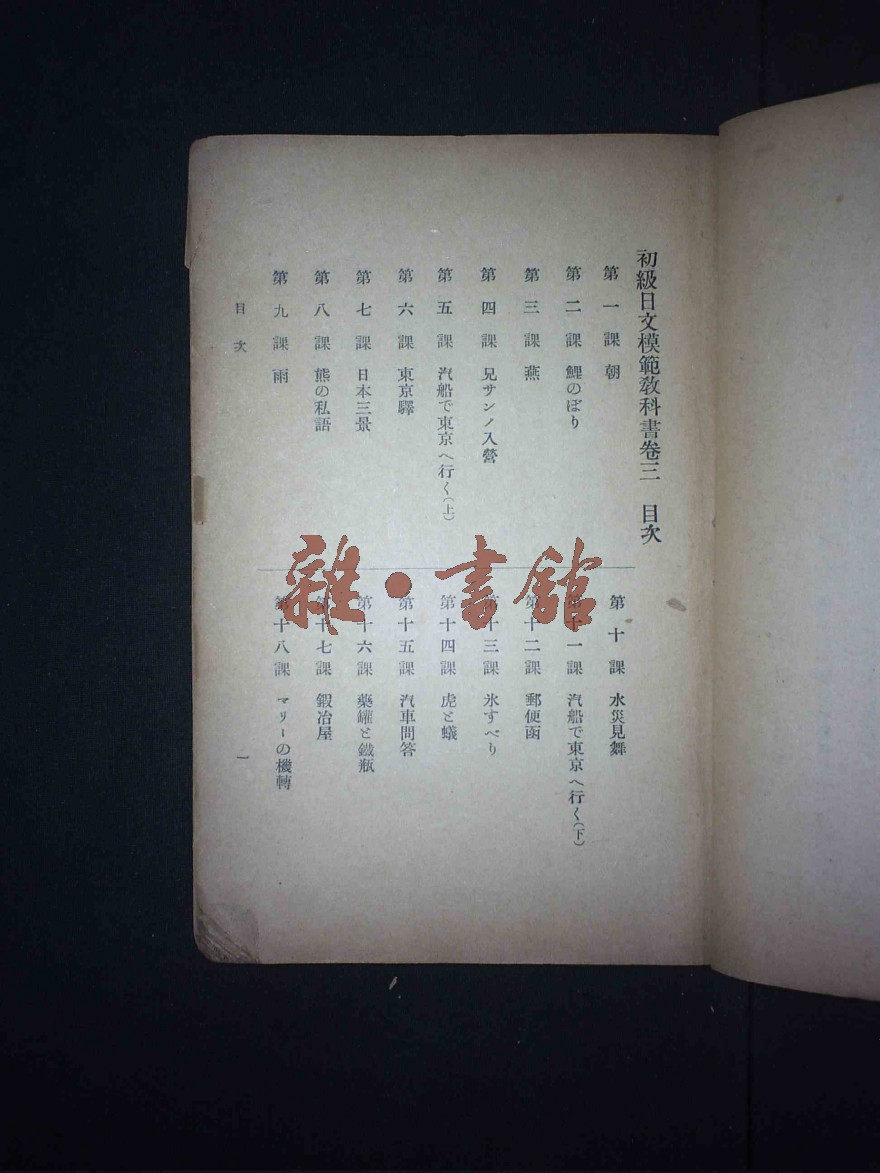 初級日文模範教科書卷三 目次
第一課 朝
第二課 鯉のぼり
第三課 燕
第四課 兄サンノ入營
第五課 汽船で東京へ行く(上)
第六課 東京驛
第七課 日本三景
第八課 熊の私語
第九課 雨
第十課 水災見舞
第十一課 汽船で東京へ行く(下)
第十二課 郵便函
第十三課 氷すべり
第十四課 虎と蟻
第十五課 汽車問答
第十六課 藥罐と鐵瓶
第十七課 鍛冶屋
第十八課 マリーの機轉
目次
一
雜·書館